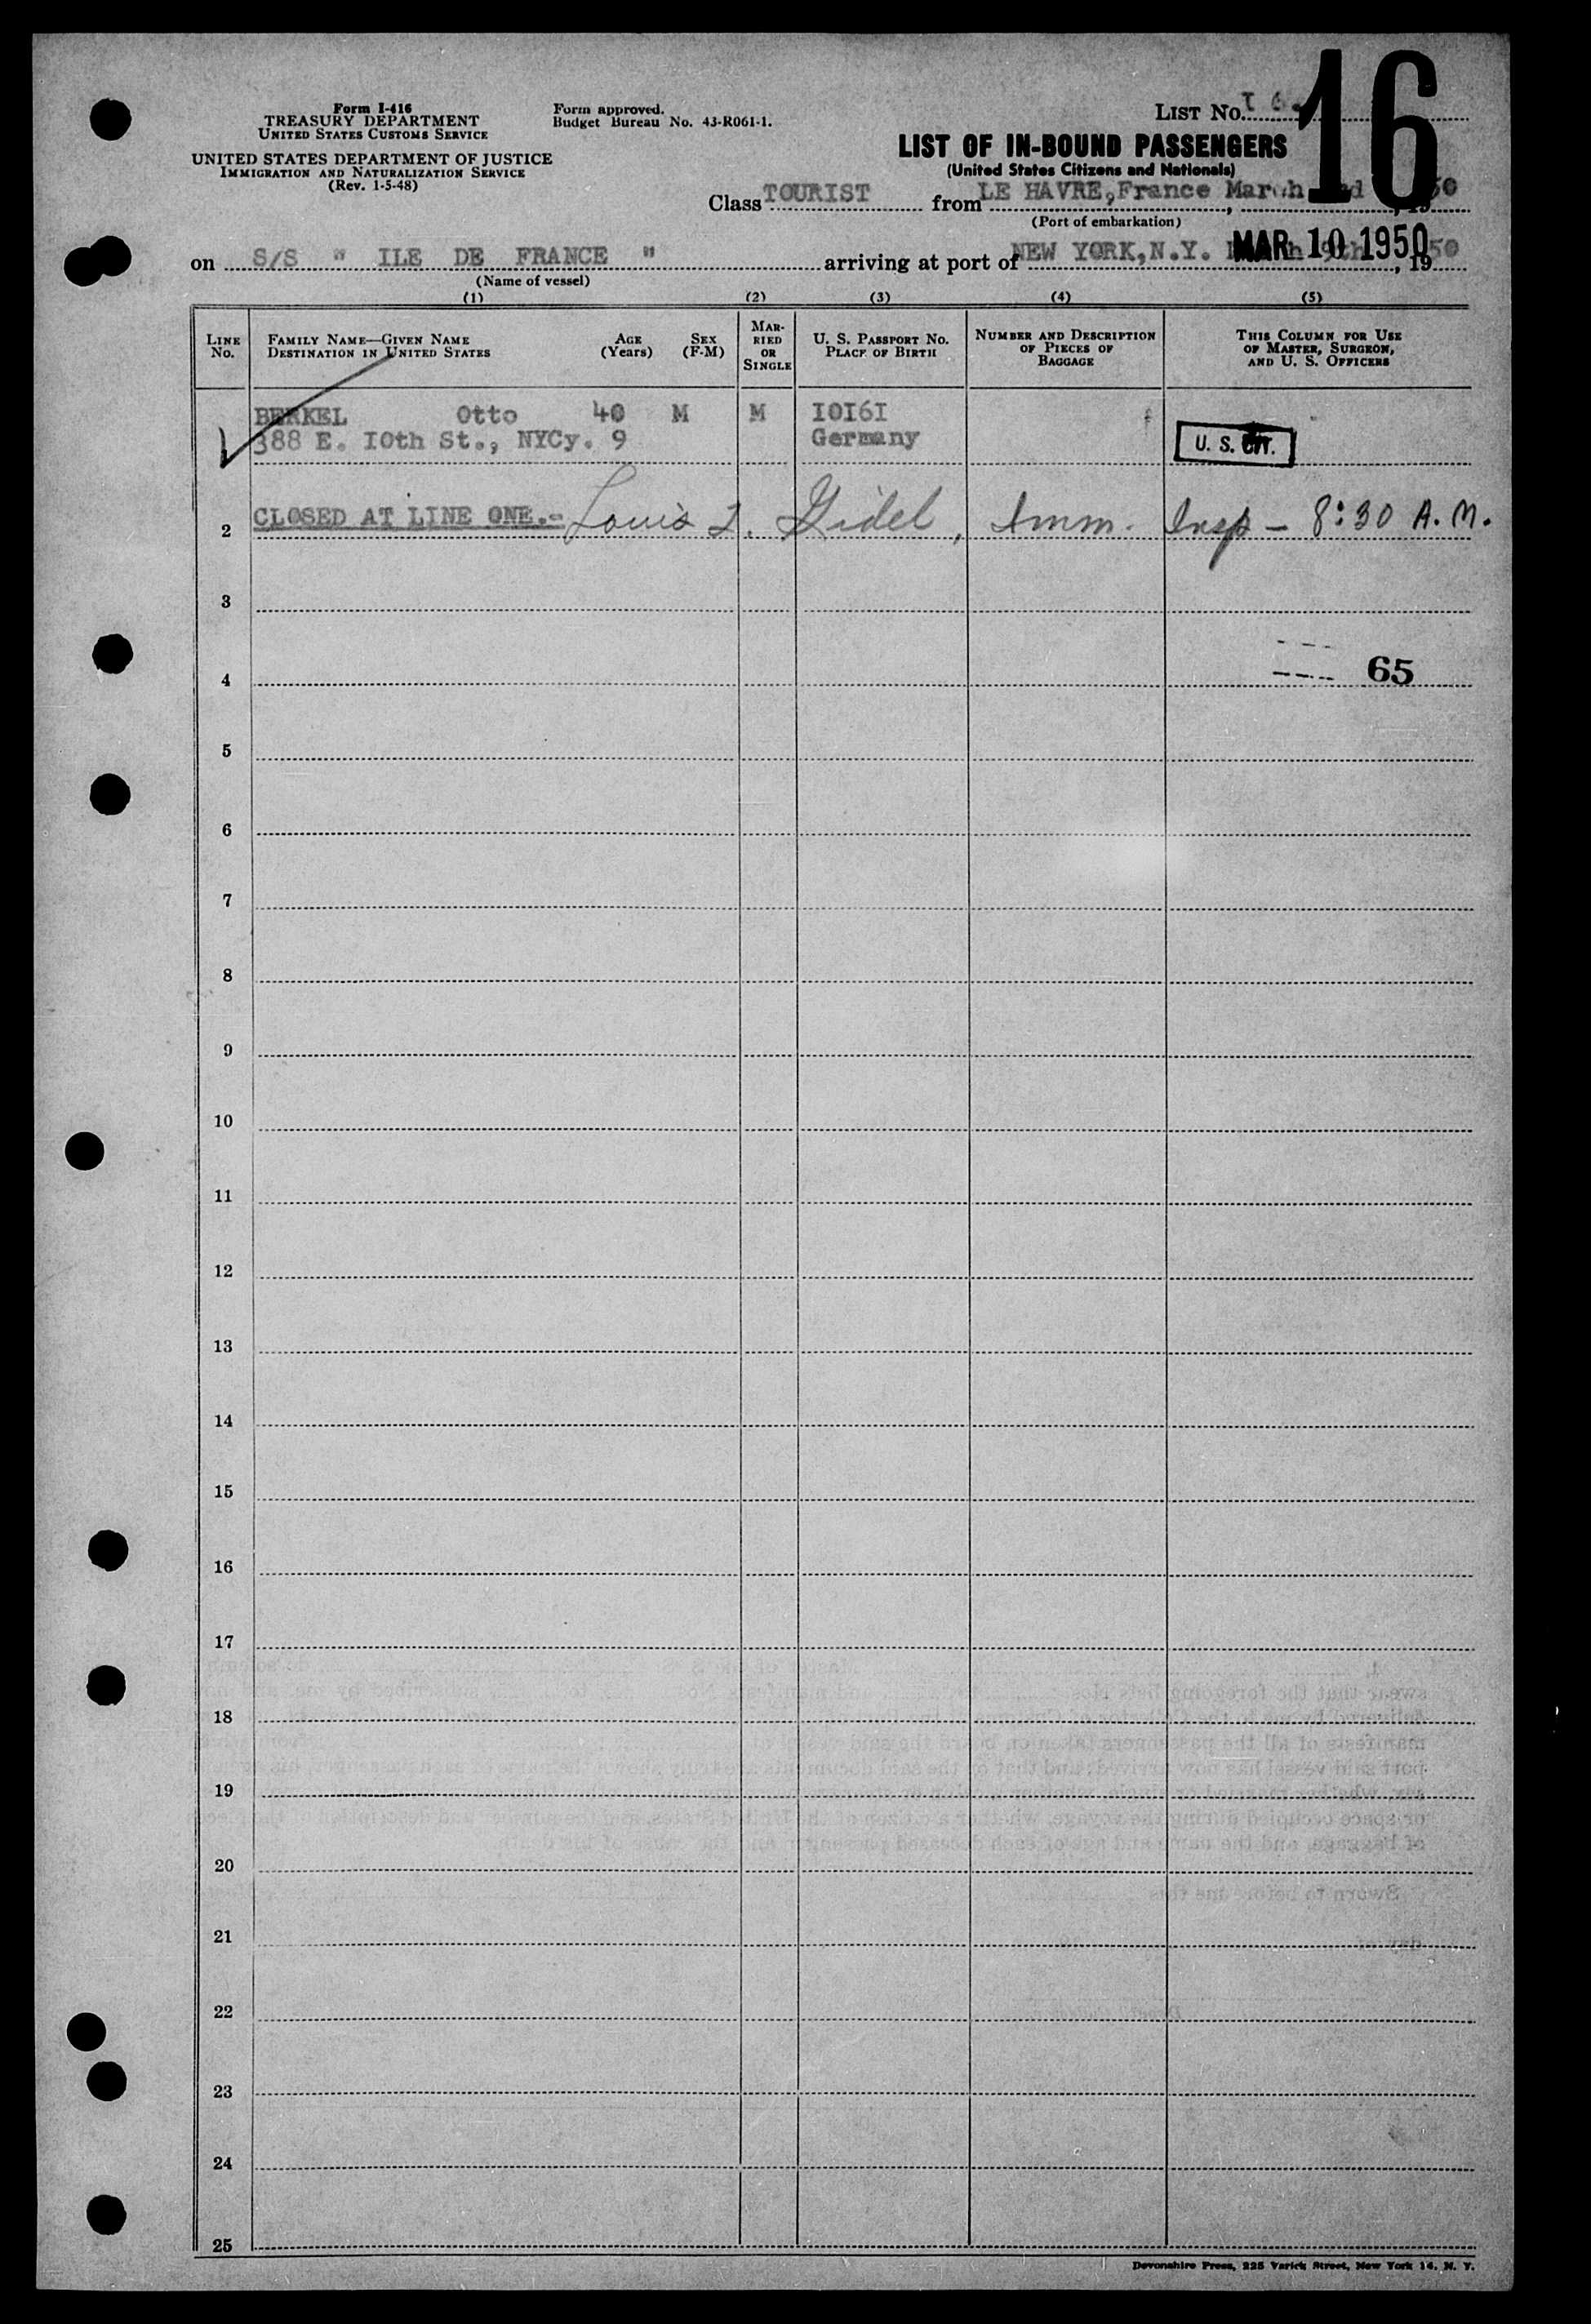 16
Form I-416
TREASURY DEPARTMENT
UNITED STATES CUSTOMS SERVICE
UNITED STATES DEPARTMENT OF JUSTICE
IMMIGRATION AND NATURALIZATION SERVICE
(Rev. 1-5-48)
Form approved.
Budget Bureau No. 43-R061-1.
LIST No.
LIST OF IN-BOUND PASSENGERS
(United States Citizens and Nationals)
Class TOURIST from LE HAVRE, France March , 1950
(Port of embarkation)
on S/S " ILE DE FRANCE " arriving at port of NEW YORK, N.Y. , 1950
MAR 10 1950
(Name of vessel)
(1) (2) (3) (4) (5)
LINE No. FAMILY NAME—GIVEN NAME DESTINATION IN UNITED STATES AGE (Years) SEX (F-M) MARRIED OR SINGLE U. S. PASSPORT No. PLACE OF BIRTH NUMBER AND DESCRIPTION OF PIECES OF BAGGAGE THIS COLUMN FOR USE OF MASTER, SURGEON, AND U. S. OFFICERS
BERKEL Otto 40 M M I0I6I
388 E. I0th St., NYCy. 9 Germany U. S. CIT.
2 CLOSED AT LINE ONE.- Louis I. Gidel, Imm. Insp - 8:30 A.M.
3
4 65
5
6
7
8
9
10
11
12
13
14
15
16
17
18
19
20
21
22
23
24
25
Devonshire Press, 225 Varick Street, New York 14, N. Y.